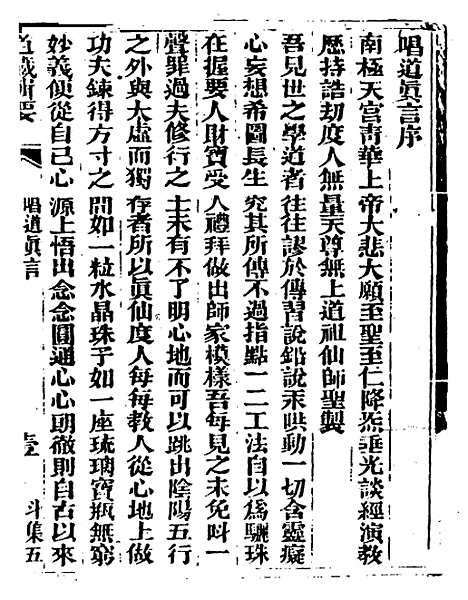 唱道眞言序
南極天宮靑華上帝大悲大願至聖至仁降炁垂光談經演敎
歷持誥劫度人無量天尊無上道祖仙師聖製
吾見世之學道者往往謬於傳習說鉛說汞哄動一切含靈癡
心妄想希圖長生究其所傳不過指點一二工法自以爲驪珠
在握要人財寶受人禮拜做出師家模樣吾每見之未免呌一
聲罪過夫修行之士未有不了明心地而可以跳出陰陽五行
之外與太虛而獨存者所以眞仙度人每每敎人從心地上做
功夫鍊得方寸之間如一粒水晶珠子如一座琉璃寶瓶無窮
妙義便從自己心源上悟出念念圓通心心朗徹則自古以來
道藏輯要
唱道眞言
壹
斗集五